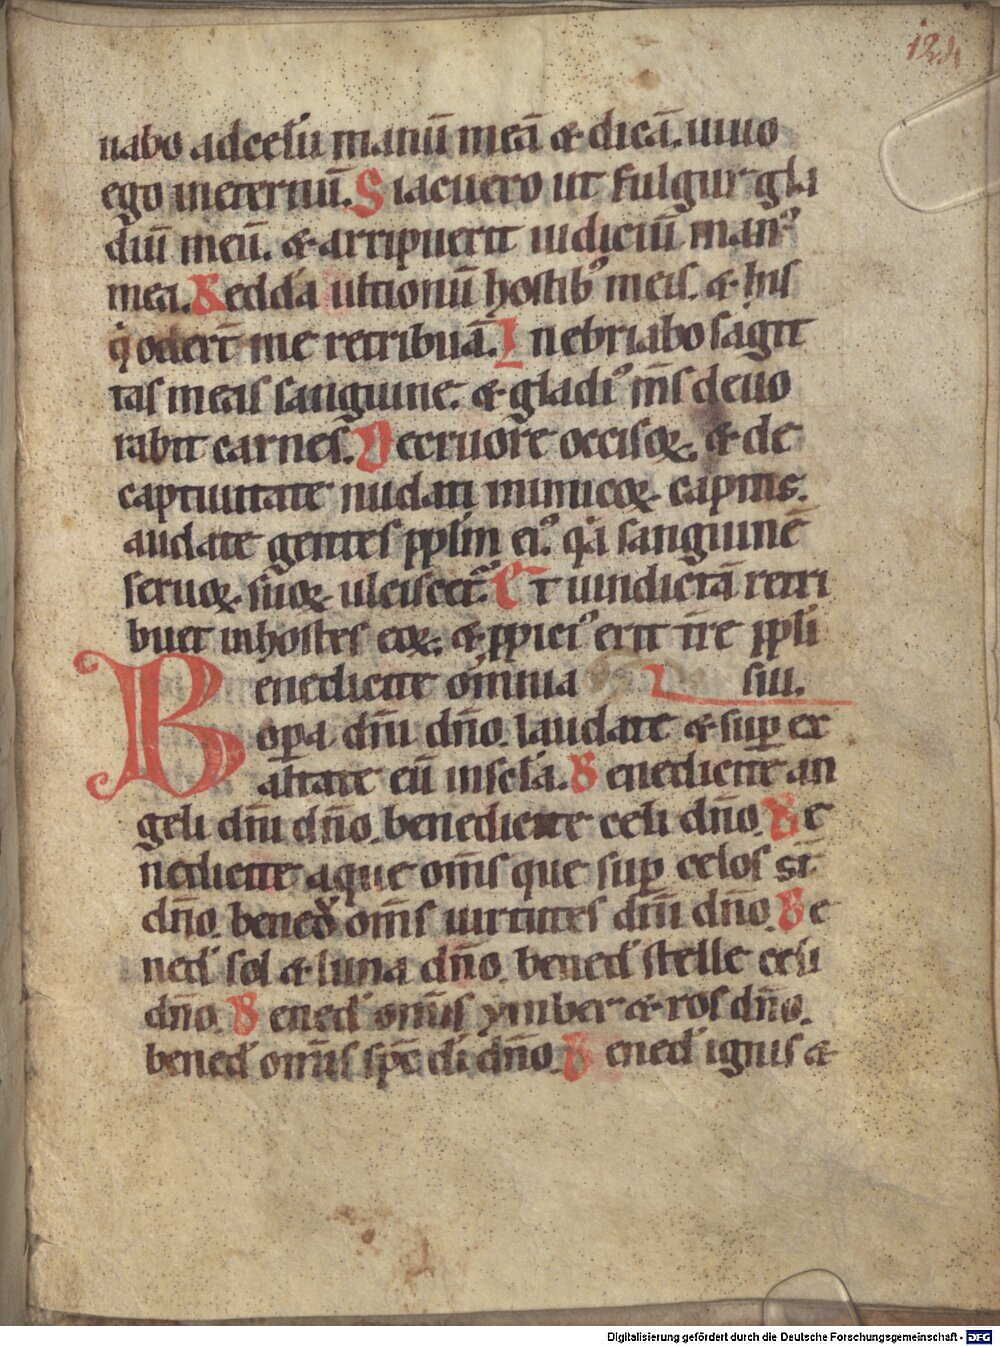 124
uabo ad celū manū meā & dicā. uiuo
ego in eternū. Si acuero ut fulgur gla
diū meū. & arripuerit iudiciū man᷒
mea. Reddā ultionū hostib᷒ meis. & his
q̇ oder̄t me retribuā. Inebriabo sagit
tas meas sanguine. & gladi᷒ m̄s deuo
rabit carnes. De cruore occisoꝝ. & de
captiuitate nudati inimicoꝝ capitis.
audate gentes pplm̄ ei᷒. q̇a sanguinē
seruoꝝ suoꝝ ulciscet᷒. Et uindictā retri
buet in hostes eoꝝ. & ꝓpici᷒ erit tr̄e ppl̄i
Benedicite om̄nia sui.
oꝑa dn̄i dn̄o. laudate & suꝑ ex
altate eū in scl̄a. Benedicite an
geli dn̄i dn̄o. benedicite celi dn̄o. Be
nedicite aque om̄s que suꝑ celos st̄
dn̄o. bened̄ om̄s uirtutes dn̄i dn̄o. Be
ned̄ sol & luna dn̄o. bened̄ stelle celi
dn̄o. Bened̄ om̄is ymber & ros dn̄o.
bened̄ om̄is sp̄c di dn̄o. Bened̄ ignis &
Digitalisierung gefördert durch die Deutsche Forschungsgemeinschaft - DFG